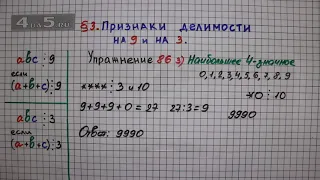 4 из 5.RU
§3. Признаки делимости
на 9 и на 3.
abc ⋮ 9
если
(a+b+c)⋮9
abc ⋮ 3
если
(a+b+c)⋮3
Упражнение 86 з) Наибольшее 4-значное
0, 1, 2, 3, 4, 5, 6, 7, 8, 9
**** ⋮ 3 и 10
*0 ⋮ 10
9+9+9+0=27 27:3=9
9990
Ответ: 9990